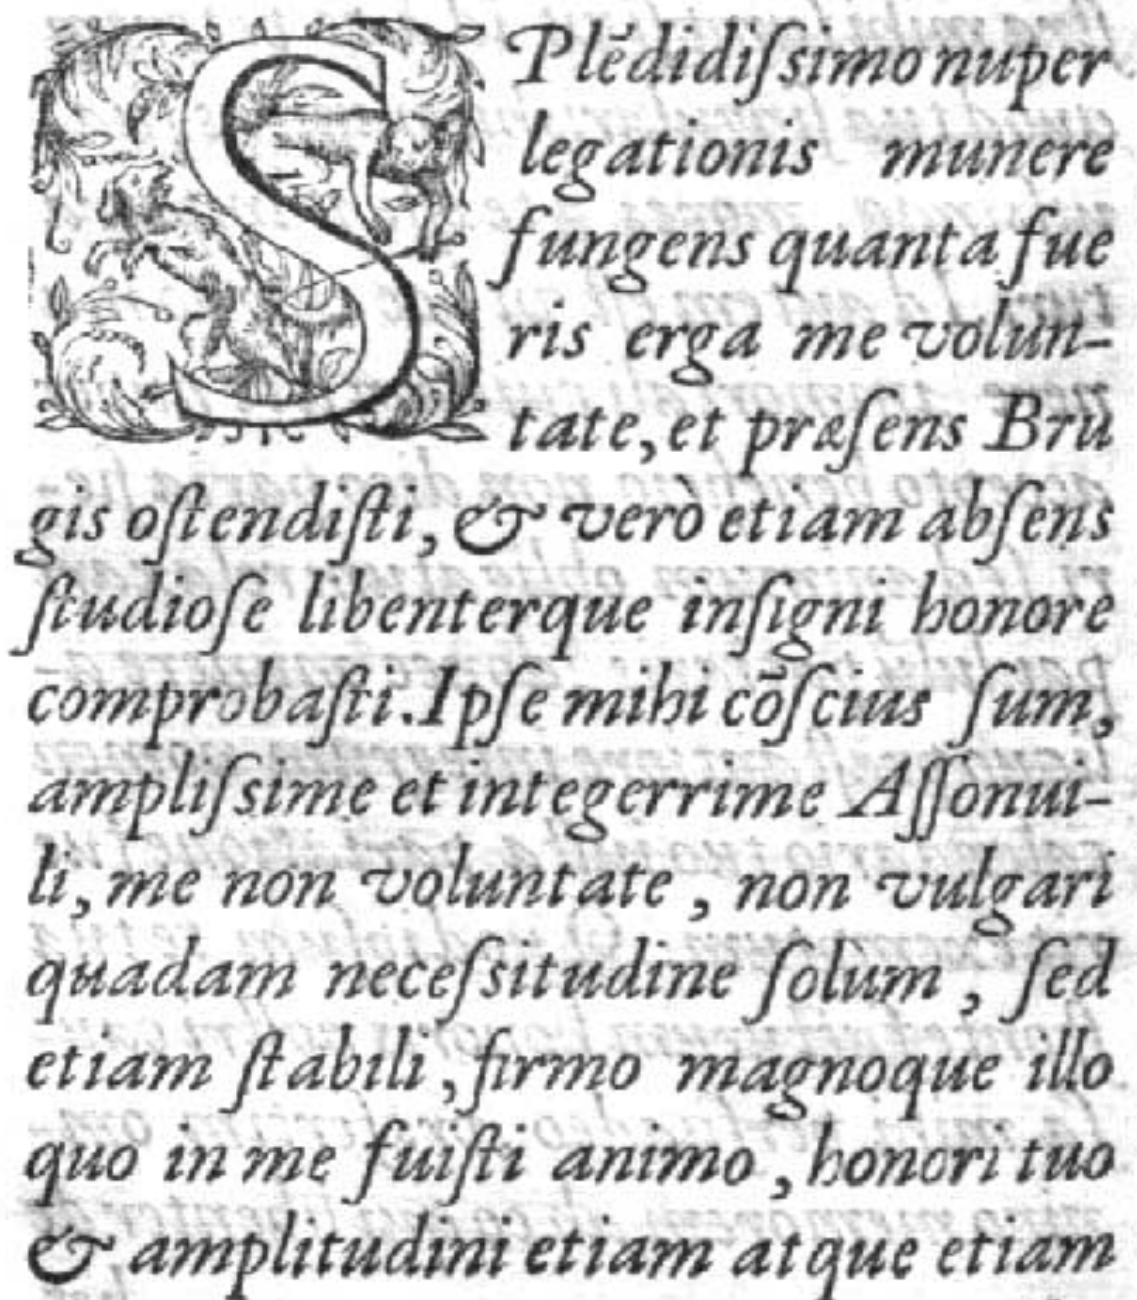 SPlēdidiſsimo nuper
legationis munere
fungens quanta fue
ris erga me volun-
tate, et præſens Bru
gis oſtendiſti, & verò etiam abſens
ſtudioſe libenterque inſigni honore
comprobaſti. Ipſe mihi cōſcius ſum,
ampliſsime et integerrime Aſſonui-
li, me non voluntate, non vulgari
quadam neceſsitudine ſolùm, ſed
etiam ſtabili, firmo magnoque illo
quo in me fuiſti animo, honori tuo
& amplitudini etiam atque etiam